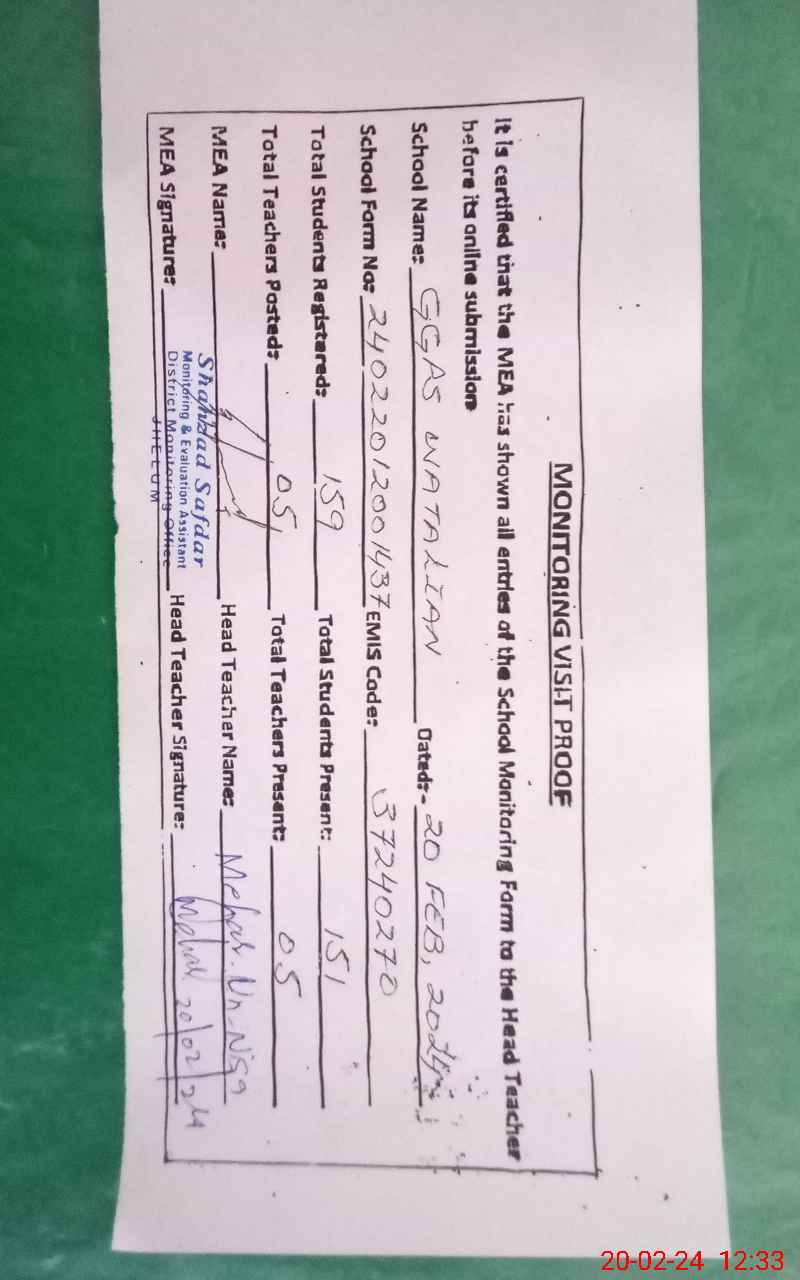 MONITORING VISIT PROOF
It is certified that the MEA has shown all entries of the School Monitoring Form to the Head Teacher
before its online submission
School Name: GGAS WATALIAN Dated:- 20 FEB, 2024
School Form No: 24022012001437 EMIS Code: 37240270
Total Students Registered: 159 Total Students Present: 151
Total Teachers Posted: 05 Total Teachers Present: 05
MEA Name: Head Teacher Name: Mehar-Un-Nisa
Shahzad Safdar
Monitoring & Evaluation Assistant
District Monitoring Office
JHELUM
MEA Signature: Head Teacher Signature: Mehar 20/02/24
20-02-24 12:33